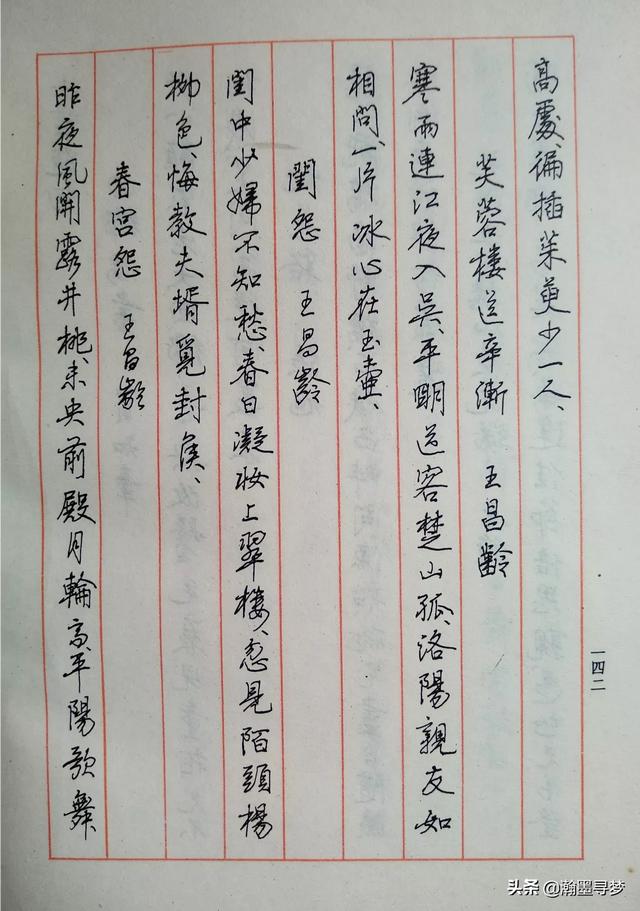 高處、徧插茱萸少一人、
芙蓉樓送辛漸 王昌齡
寒雨連江夜入吳、平明送客楚山孤、洛陽親友如
相問、一片冰心在玉壺、
閨怨 王昌齡
閨中少婦不知愁、春日凝妝上翠樓、忽見陌頭楊
柳色、悔教夫壻覓封侯、
春宮怨 王昌齡
昨夜風開露井桃、未央前殿月輪高、平陽歌舞
一四二
头条 @瀚墨寻梦